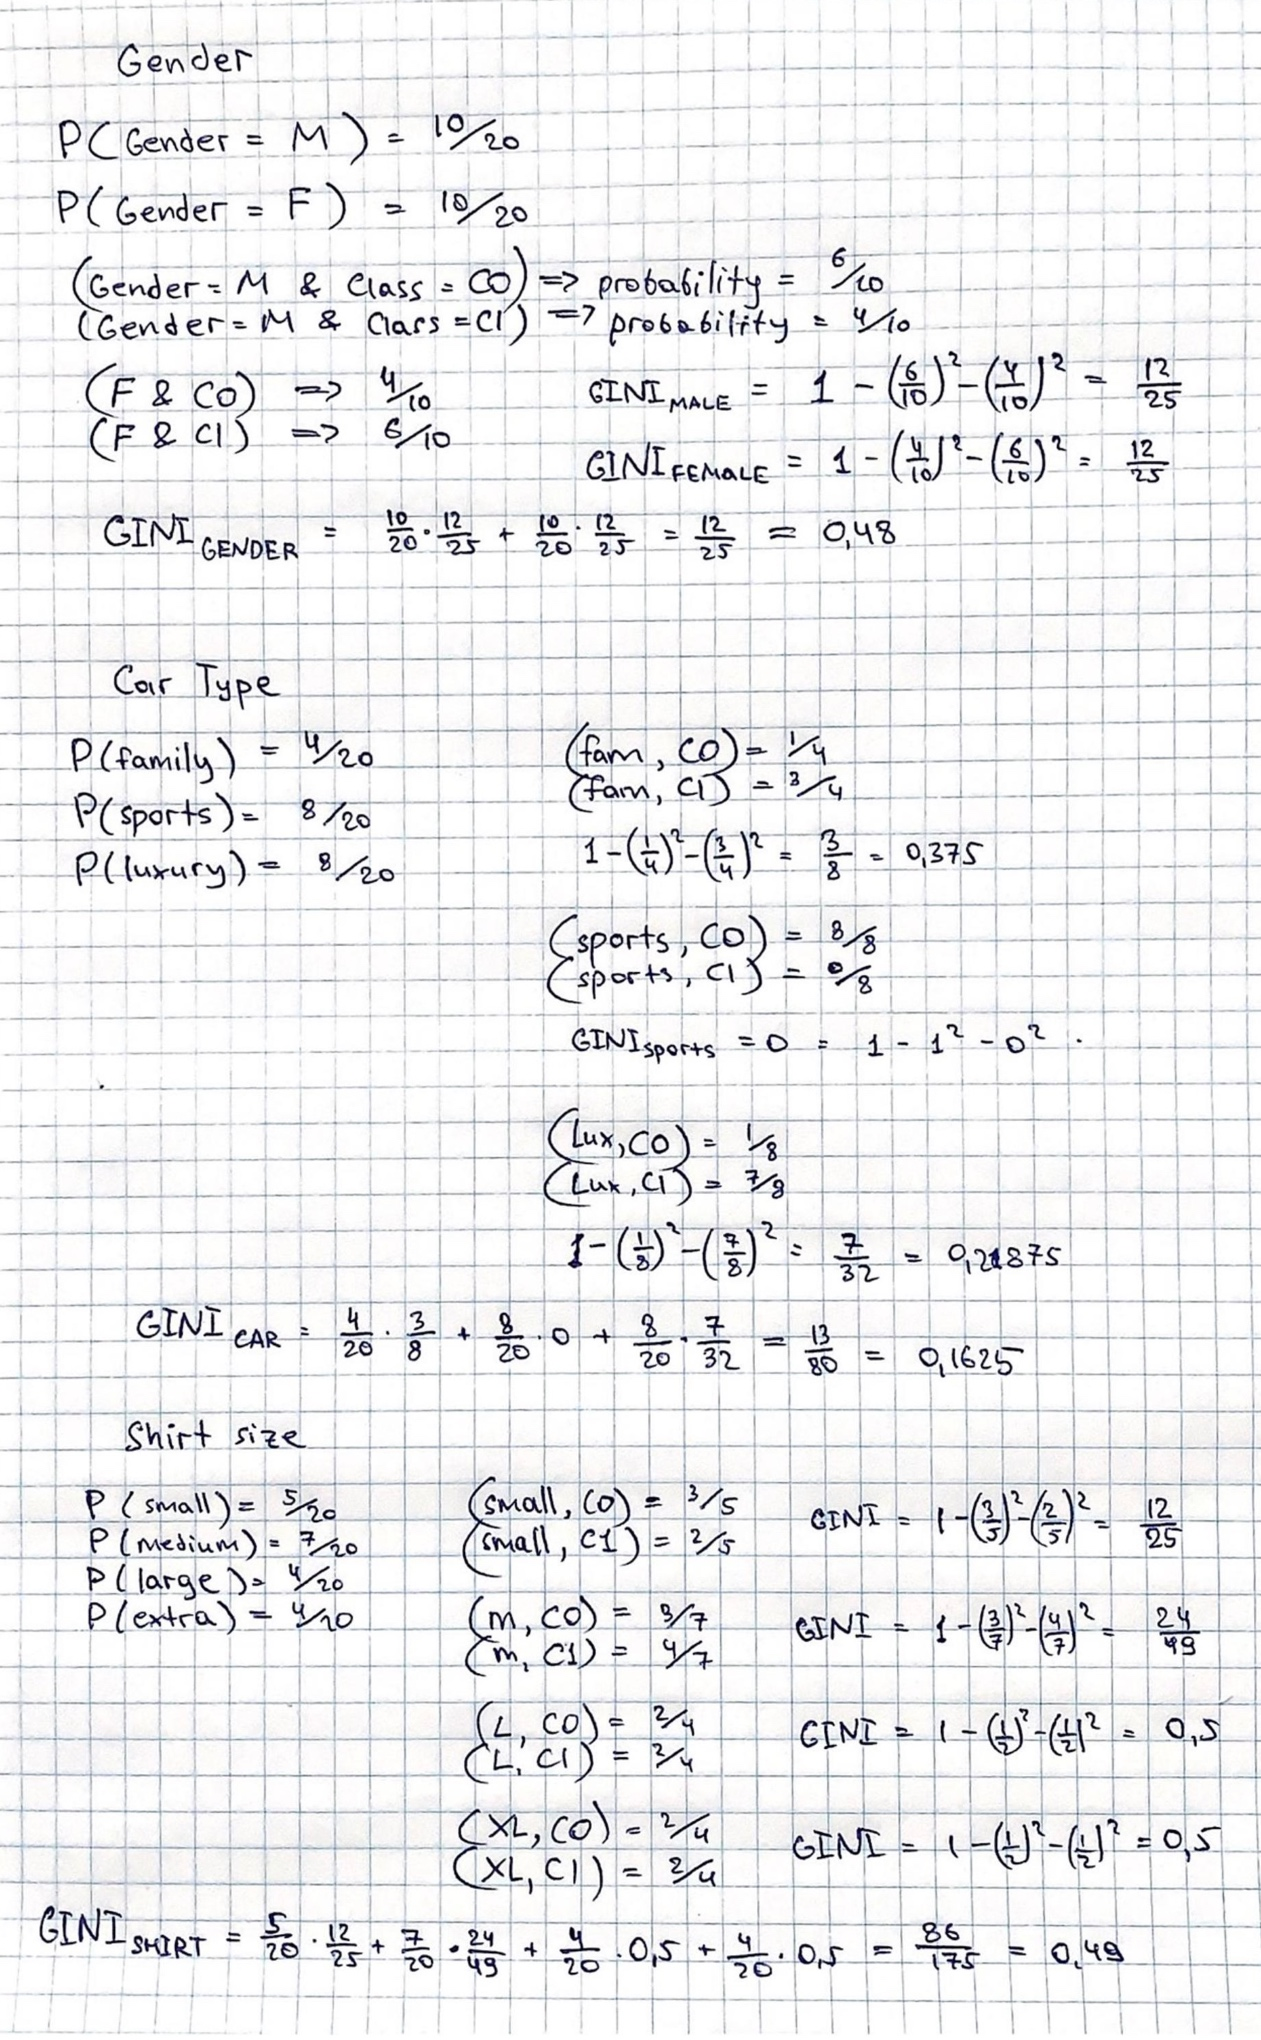 Gender
P(Gender = M) = 10/20
P(Gender = F) = 10/20
(Gender = M & Class = C0) => probability = 6/10
(Gender = M & Class = C1) => probability = 4/10
(F & C0) => 4/10
(F & C1) => 6/10
GINI MALE = 1 - (6/10)² - (4/10)² = 12/25
GINI FEMALE = 1 - (4/10)² - (6/10)² = 12/25
GINI GENDER = 10/20 · 12/25 + 10/20 · 12/25 = 12/25 = 0,48
Car Type
P(family) = 4/20
P(sports) = 8/20
P(luxury) = 8/20
(fam, C0) = 1/4
(fam, C1) = 3/4
1 - (1/4)² - (3/4)² = 3/8 = 0,375
(sports, C0) = 8/8
(sports, C1) = 0/8
GINI sports = 0 = 1 - 1² - 0².
(Lux, C0) = 1/8
(Lux, C1) = 7/8
1 - (1/8)² - (7/8)² = 7/32 = 0,21875
GINI CAR = 4/20 · 3/8 + 8/20 · 0 + 8/20 · 7/32 = 13/80 = 0,1625
Shirt size
P(small) = 5/20
P(medium) = 7/20
P(large) = 4/20
P(extra) = 4/20
(small, C0) = 3/5
(small, C1) = 2/5
GINI = 1 - (3/5)² - (2/5)² = 12/25
(m, C0) = 3/7
(m, C1) = 4/7
GINI = 1 - (3/7)² - (4/7)² = 24/49
(L, C0) = 2/4
(L, C1) = 2/4
GINI = 1 - (1/2)² - (1/2)² = 0,5
(XL, C0) = 2/4
(XL, C1) = 2/4
GINI = 1 - (1/2)² - (1/2)² = 0,5
GINI SHIRT = 5/20 · 12/25 + 7/20 · 24/49 + 4/20 · 0,5 + 4/20 · 0,5 = 86/175 = 0,49